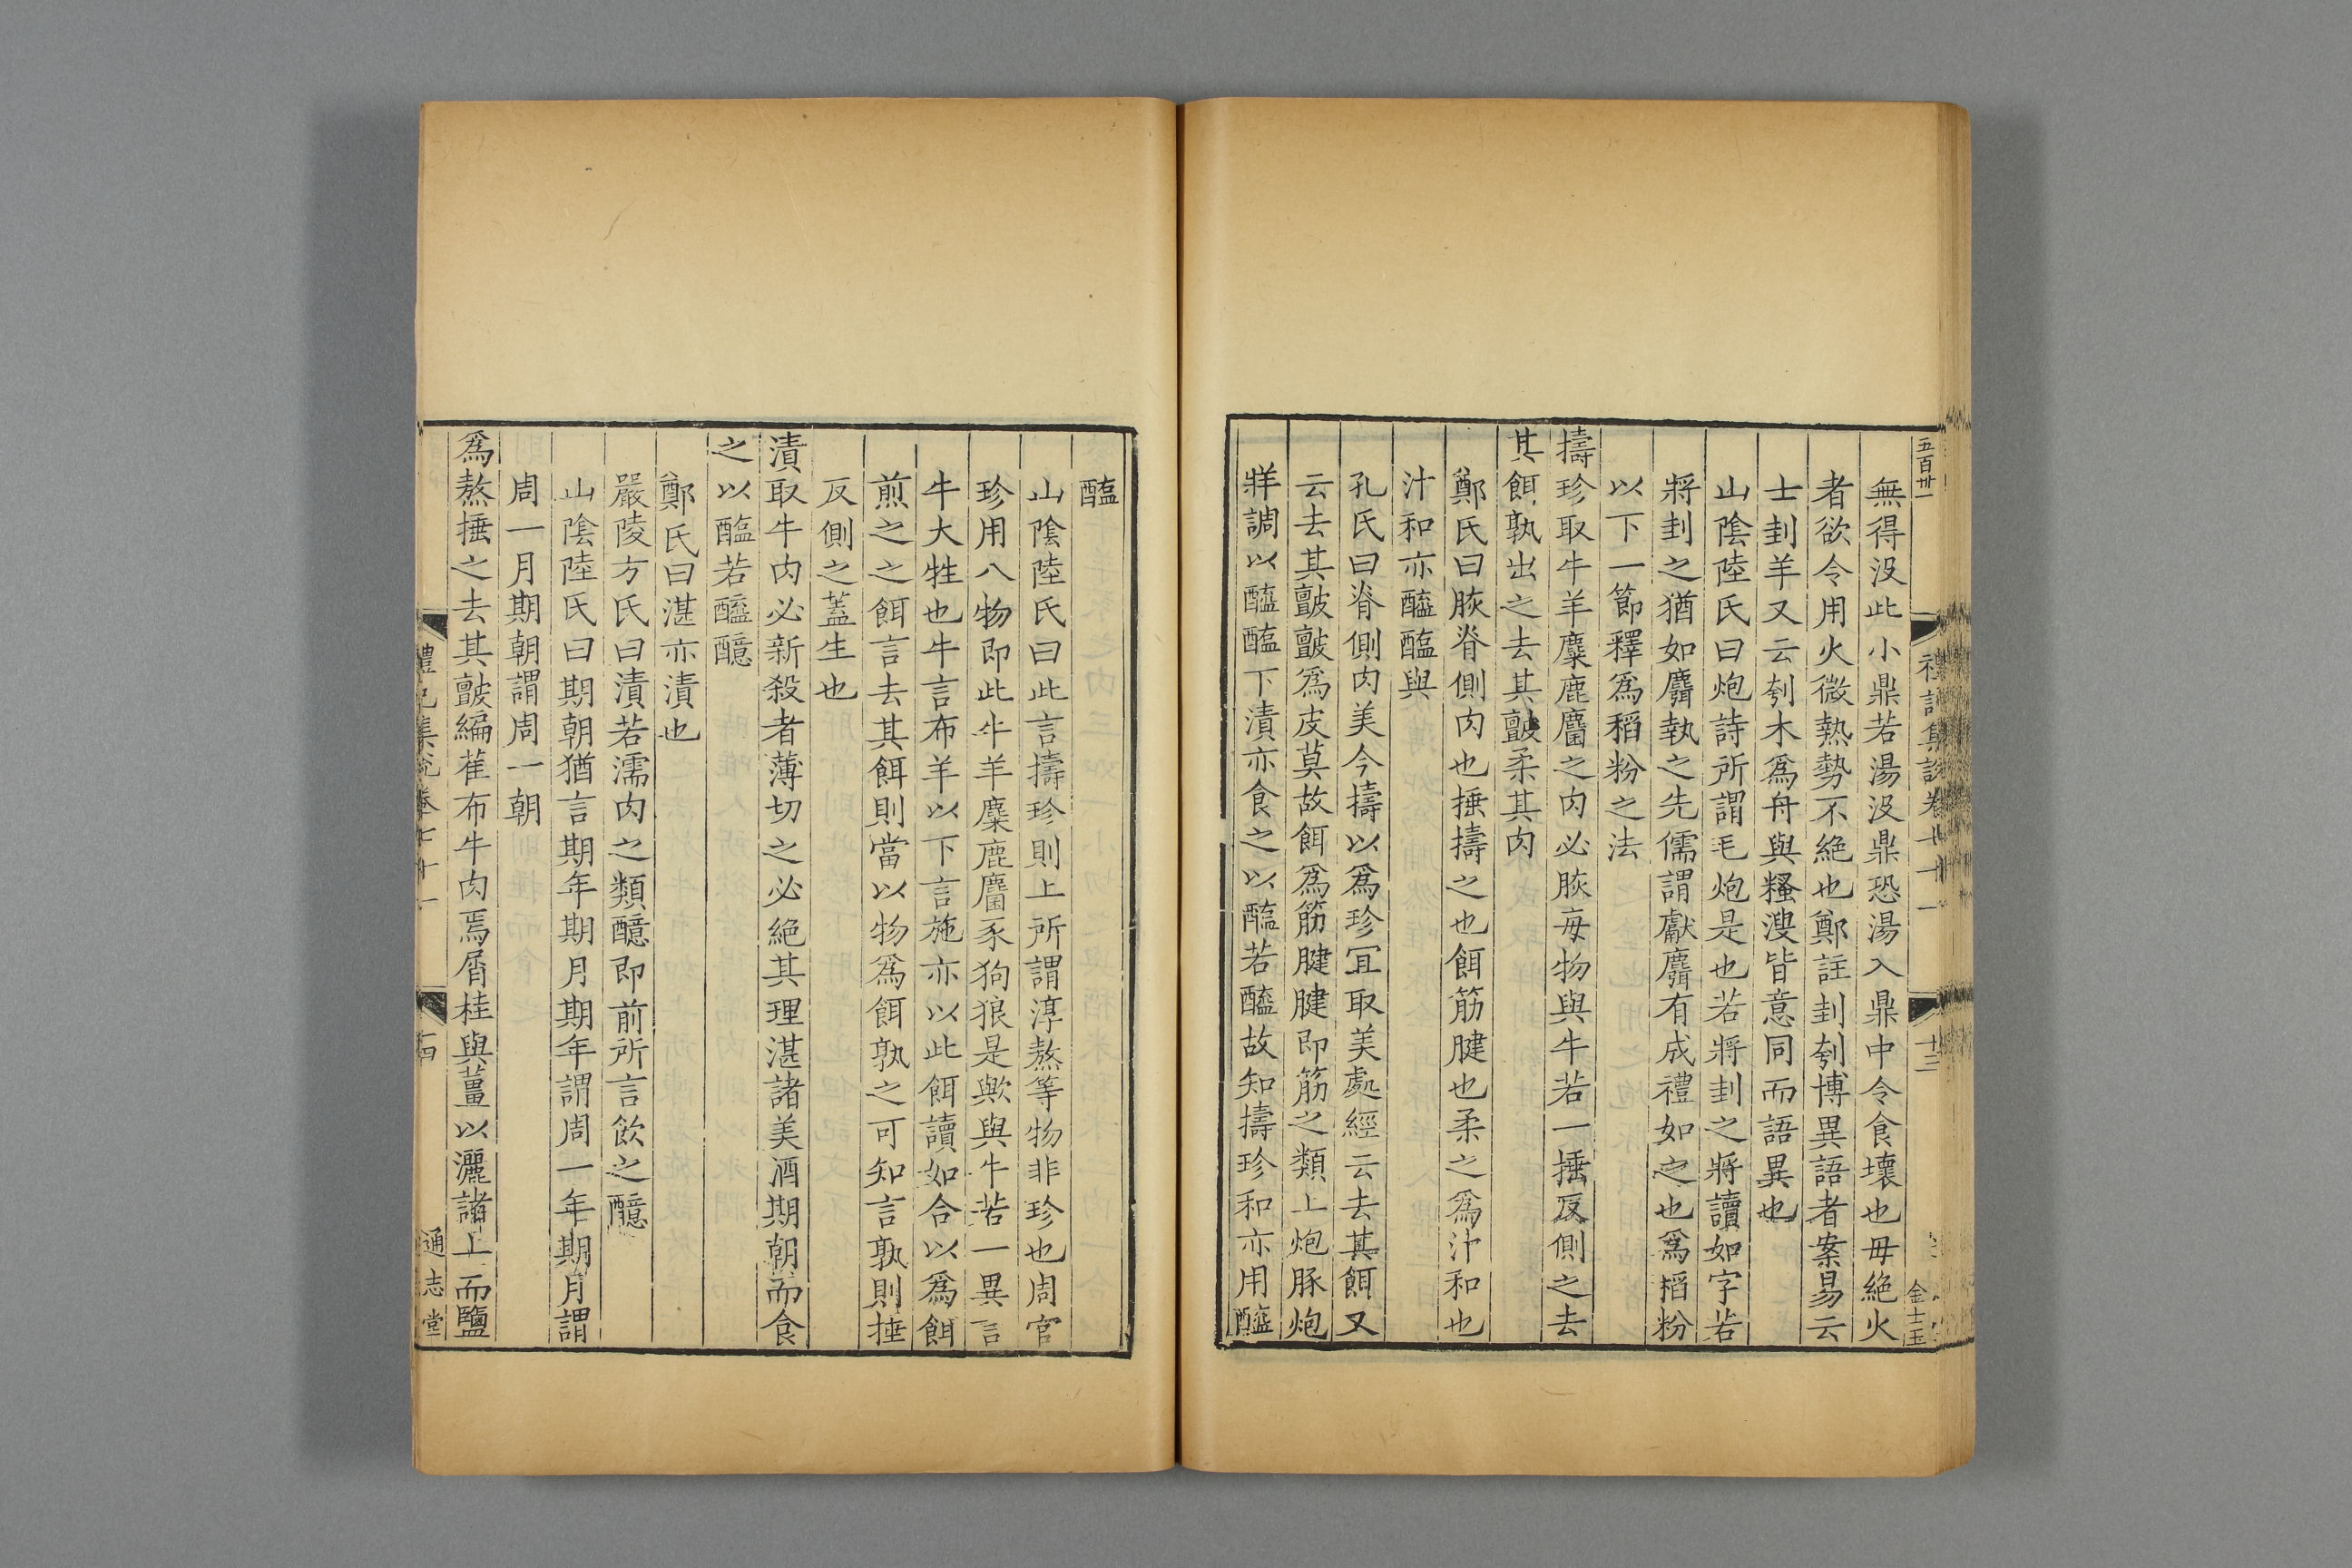 五百卅一
禮記集說卷七十一
十三
金士玉
無得没此小鼎若湯没鼎恐湯入鼎中令食壞也毋絶火
者欲令用火微熱勢不絶也鄭註刲刳博異語者案易云
士刲羊又云刳木爲舟與糔溲皆意同而語異也
山隂陸氏曰炮詩所謂毛炮是也若將刲之將讀如字若
將刲之猶如麛執之先儒謂獻麛有成禮如之也爲稻粉
以下一節釋爲稻粉之法
擣珍取牛羊麋鹿麕之肉必脄每物與牛若一捶反側之去
其餌孰出之去其皽柔其肉
鄭氏曰脄脊側肉也捶擣之也餌筋腱也柔之爲汁和也
汁和亦醯醢與
孔氏曰脊側肉美今擣以爲珍冝取美處經云去其餌又
云去其皽皽爲皮莫故餌爲筋腱腱即筋之類上炮豚炮
牂調以醯醢下漬亦食之以醢若醯故知擣珍和亦用醯
醢
山隂陸氏曰此言擣珍則上所謂淳熬等物非珍也周官
珍用八物即此牛羊麋鹿麕豕狗狼是歟與牛若一異言
牛大牲也牛言布羊以下言施亦以此餌讀如合以爲餌
煎之之餌言去其餌則當以物爲餌孰之可知言孰則捶
反側之蓋生也
漬取牛肉必新殺者薄切之必絶其理湛諸美酒期朝而食
之以醢若醯醷
鄭氏曰湛亦漬也
嚴陵方氏曰漬若濡肉之類醷即前所言飲之醷
山隂陸氏曰期朝猶言期年期月期年謂周一年期月謂
周一月期朝謂周一朝
爲熬捶之去其皽編萑布牛肉焉屑桂與薑以灑諸上而鹽
禮記集說卷七十一
十四
通志堂